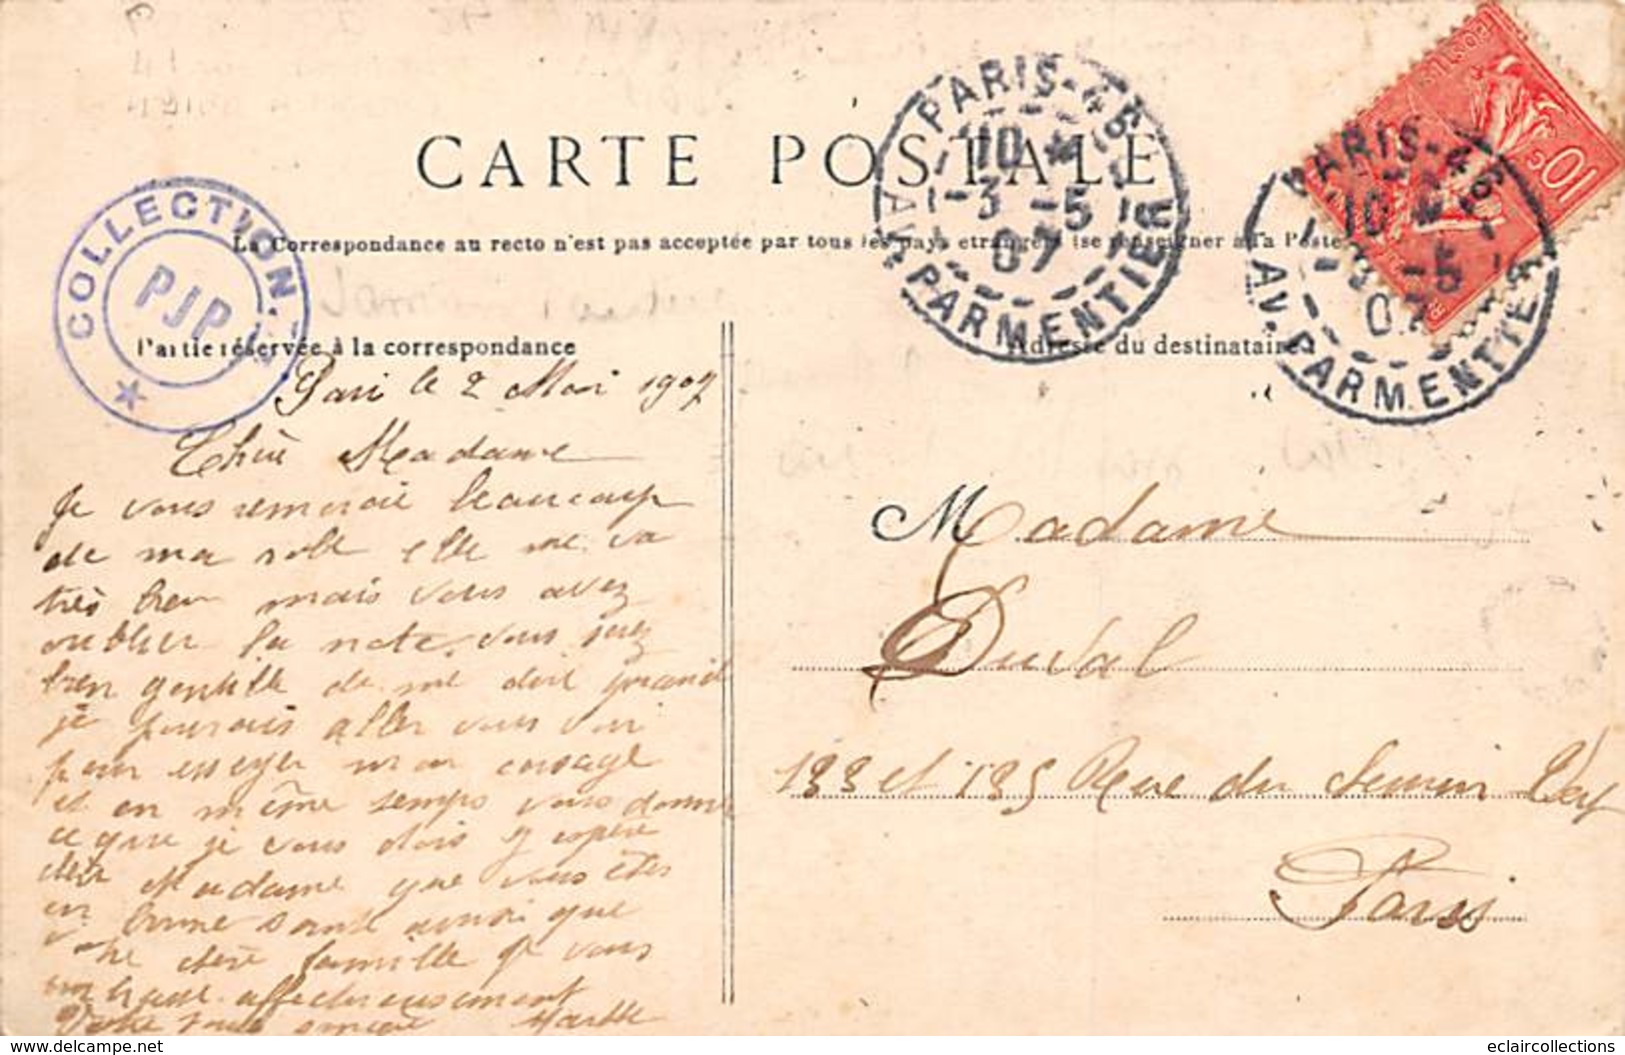 CARTE POSTALE
COLLECTION
PJP
La Correspondance au recto n'est pas acceptée par tous les pays étrangers (se renseigner à la Poste
Partie réservée à la correspondance
Adresse du destinataire
PARIS-46
10
3 -5
07
AV. PARMENTIER
PARIS-46
10
3 -5
07
AV. PARMENTIER
POSTES
10 c
Pari le 2 Mai 1907
Chère Madame
Je vous remercie beaucoup
de ma robe elle me va
très bien mais vous avez
oublier la note, vous serez
bien gentille de me dire quand
je pourais aller vous voir
pour essayer mon corsage
et en même temps vous donner
ce que je vous dois j'espère
chère Madame que vous êtes
en bonne santé ainsi que
votre chère famille Je vous
embrasse affectueusement
Votre toute sincère Marthe
Madame
Duval
133 et 135 Rue du Chemin Vert
Paris
http://www.delcampe.net
eclaircollections